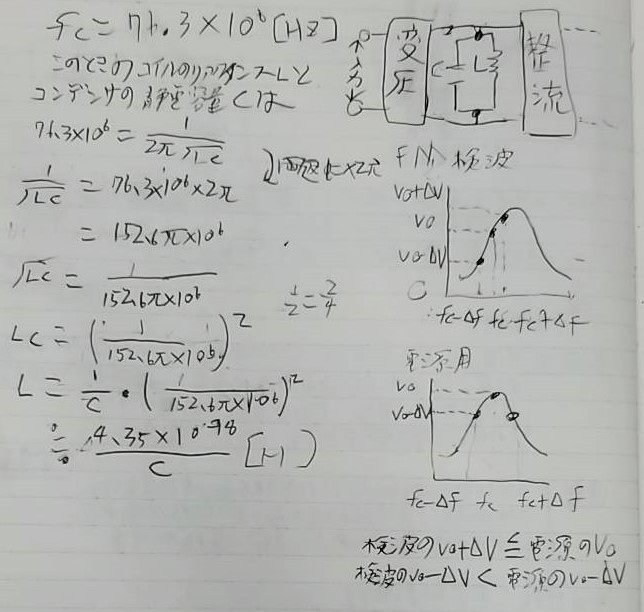 fc = 76.3×10⁶ [Hz]
このときのコイルのリアクタンスLと
コンデンサの静電容量Cは
76.3×10⁶ = 1/2π√LC
両辺に×2π
1/√LC = 76.3×10⁶×2π
= 152.6π×10⁶
√LC = 1/152.6π×10⁶
1/2 = 2/4
LC = (1/152.6π×10⁶)²
L = 1/C・(1/152.6π×10⁶)²
≒ 4.35×10⁻¹⁸/C [H]
入力
変圧
C
L
整流
FM検波
V0+ΔV
V0
V0-ΔV
0
fc-Δf fc fc+Δf
電源用
V0
V0-ΔV
fc-Δf fc fc+Δf
検波のV0+ΔV ≦ 電源のV0
検波のV0-ΔV < 電源のV0-ΔV